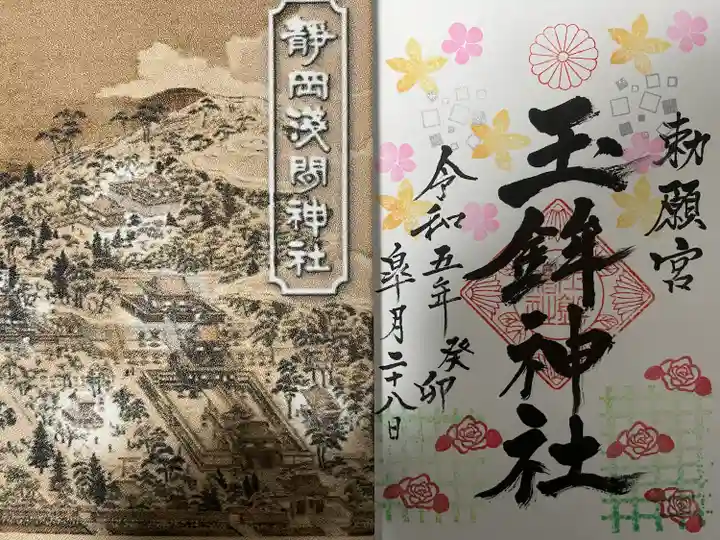 靜岡淺間神社
勅願宮
玉鉾神社
令和五年癸卯
皐月二十八日